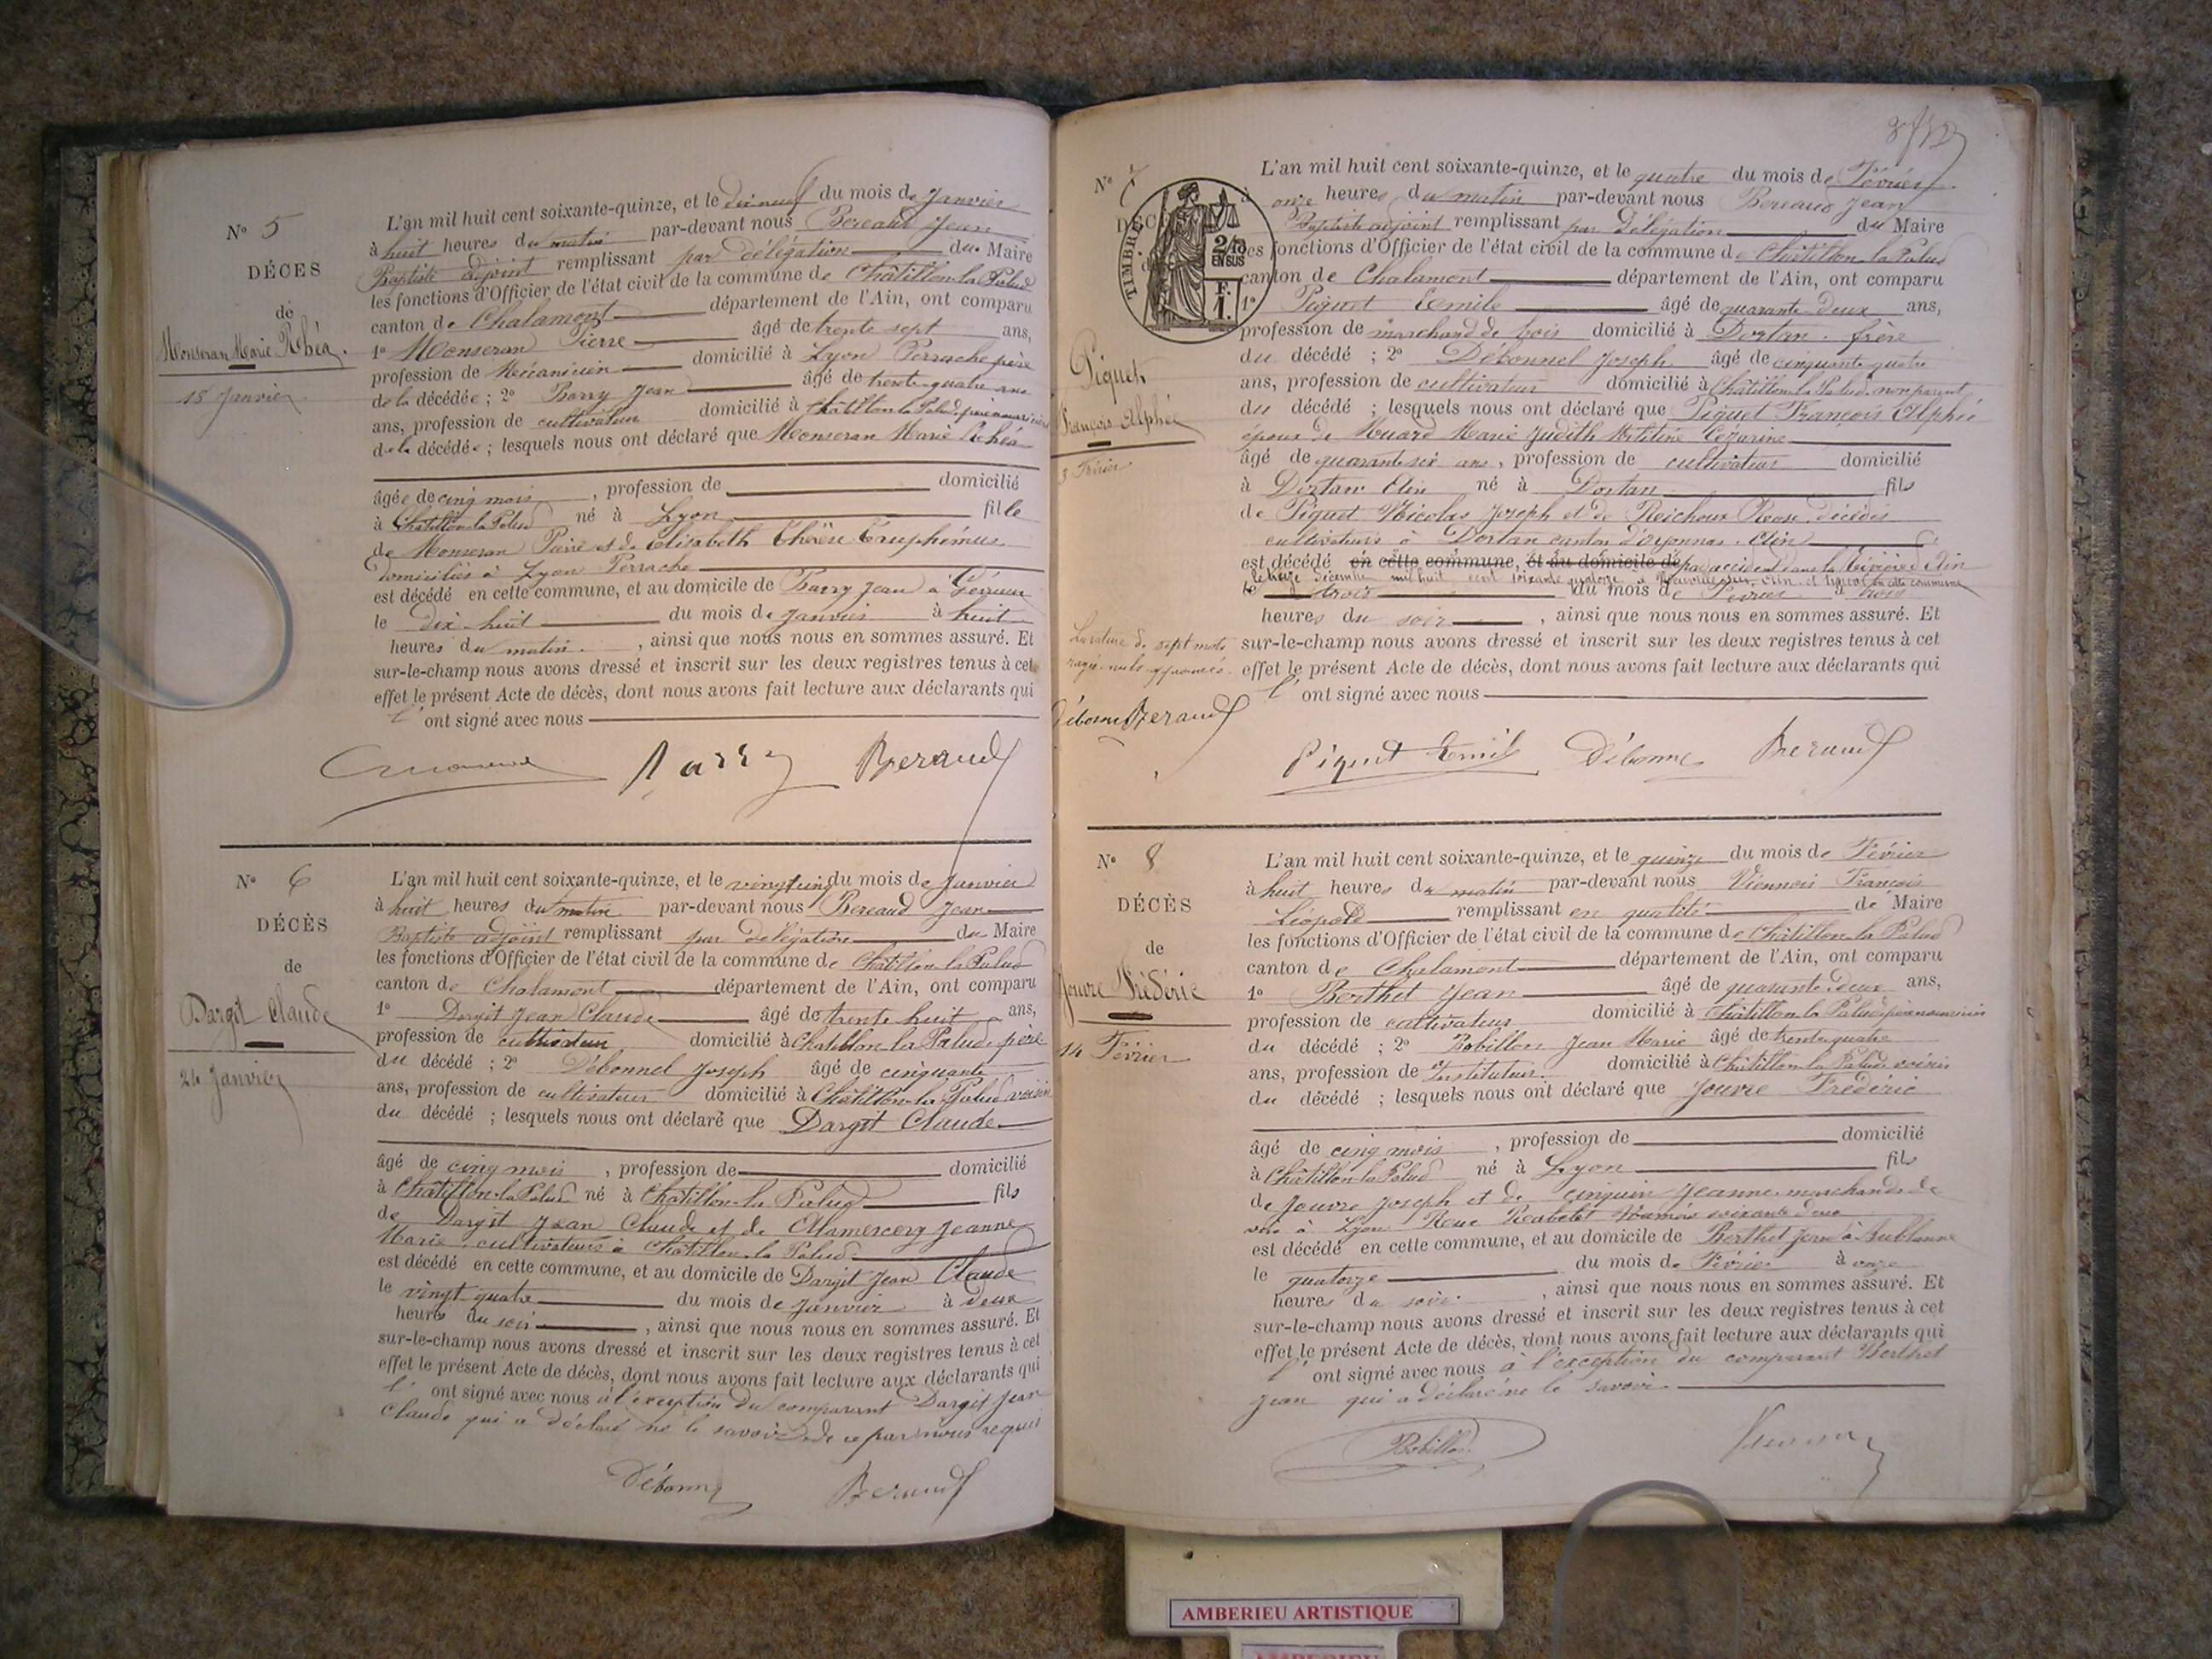 N° 5
DÉCES
de
Monseran Marie Rhéa.
18 Janvier
L'an mil huit cent soixante-quinze, et le dix neuf du mois de Janvier
à huit heures du matin par-devant nous Beraud Jean
Baptiste adjoint remplissant par délégation du Maire
les fonctions d'Officier de l'état civil de la commune de Châtillon la Palud
canton de Chalamont département de l'Ain, ont comparu
1° Monseran Pierre âgé de trente sept ans,
profession de Mécanicien domicilié à Lyon Perrache père
de la décédée ; 2° Barry Jean âgé de trente quatre ans
ans, profession de cultivateur domicilié à Châtillon la Palud, père nourricier
de la décédée ; lesquels nous ont déclaré que Monseran Marie Rhéa
âgée de cinq mois , profession de domicilié
à Châtillon la Palud né à Lyon fille
de Monseran Pierre et de Elisabeth Thérèse Truphémus
domiciliés à Lyon Perrache
est décédé en cette commune, et au domicile de Barry Jean à
le dix huit du mois de Janvier à huit
heures du matin. , ainsi que nous nous en sommes assuré. Et
sur-le-champ nous avons dressé et inscrit sur les deux registres tenus à cet
effet le présent Acte de décès, dont nous avons fait lecture aux déclarants qui
l' ont signé avec nous
Barry Beraud
N° 6
DÉCÈS
de
Dargit Claude
24 Janvier
L'an mil huit cent soixante-quinze, et le vingt cinq du mois de Janvier
à huit heures du matin par-devant nous Beraud Jean
Baptiste adjoint remplissant par délégation du Maire
les fonctions d'Officier de l'état civil de la commune de Châtillon la Palud
canton de Chalamont département de l'Ain, ont comparu
1° Dargit Jean Claude âgé de trente huit ans,
profession de cultivateur domicilié à Châtillon la Palud, père
du décédé ; 2° Débonnel Joseph âgé de cinquante
ans, profession de cultivateur domicilié à Châtillon la Palud voisin
du décédé ; lesquels nous ont déclaré que Dargit Claude
âgé de cinq mois , profession de domicilié
à Châtillon la Palud né à Châtillon la Palud fils
de Dargit Jean Claude et de Mamercery Jeanne
Marie, cultivateurs à Châtillon la Palud
est décédé en cette commune, et au domicile de Dargit Jean Claude
le vingt quatre du mois de Janvier à deux
heures du soir , ainsi que nous nous en sommes assuré. Et
sur-le-champ nous avons dressé et inscrit sur les deux registres tenus à cet
effet le présent Acte de décès, dont nous avons fait lecture aux déclarants qui
l' ont signé avec nous à l'exception du comparant Dargit Jean
Claude qui a déclaré ne le savoir de ce par nous requis
Débonne Beraud
N° 7
TIMBRE
2/10 EN SUS
F. 1.
Piquet
François Alphé
3 Février
L'an mil huit cent soixante-quinze, et le quatre du mois de Février
à onze heures du matin par-devant nous Beraud Jean
Baptiste adjoint remplissant par Délégation du Maire
les fonctions d'Officier de l'état civil de la commune de Châtillon la Palud
canton de Chalamont département de l'Ain, ont comparu
1° Piquet Emile âgé de quarante deux ans,
profession de marchand de bois domicilié à Dortan. frère
du décédé ; 2° Débonnel Joseph âgé de cinquante quatre
ans, profession de cultivateur domicilié à Châtillon la Palud non parent
du décédé ; lesquels nous ont déclaré que Piquet François Alphé
époux de Huard Marie Judith Cézarine
âgé de quarante six ans , profession de cultivateur domicilié
à Dortan Ain né à Dortan fils
de Piquet Nicolas Joseph et de Reichoux Rose, décédés
cultivateurs à Dortan canton d'Oyonnax. Ain
est décédé en cette commune, et au domicile de par accident dans la Rivière d'Ain
le treize décembre mil huit cent soixante quatorze à Neuville sur Ain et trouvé en cette commune
le trois du mois de Février à trois
heures du soir , ainsi que nous nous en sommes assuré. Et
sur-le-champ nous avons dressé et inscrit sur les deux registres tenus à cet
effet le présent Acte de décès, dont nous avons fait lecture aux déclarants qui
l' ont signé avec nous
de sept mots
rayés nuls approuvés.
Débonne Beraud
Piquet Emile Débonne Beraud
N° 8
DÉCÈS
de
Jouvre Frédéric
14 Février
L'an mil huit cent soixante-quinze, et le quinze du mois de Février
à huit heures du matin par-devant nous Viennois François
Léopold remplissant en qualité de Maire
les fonctions d'Officier de l'état civil de la commune de Châtillon la Palud
canton de Chalamont département de l'Ain, ont comparu
1° Berthet Jean âgé de quarante deux ans,
profession de cultivateur domicilié à Châtillon la Palud père nourricier
du décédé ; 2° Robillon Jean Marie âgé de trente quatre
ans, profession de Instituteur. domicilié à Châtillon la Palud voisin
du décédé ; lesquels nous ont déclaré que Jouvre Frédéric
âgé de cinq mois , profession de domicilié
à Châtillon la Palud né à Lyon fils
de Jouvre Joseph et de Cinquin Jeanne. marchands de
vin à Lyon Rue Rabelet Numéro soixante deux
est décédé en cette commune, et au domicile de Berthet Jean à Bublanne
le quatorze du mois de Février à onze
heures du soir. , ainsi que nous nous en sommes assuré. Et
sur-le-champ nous avons dressé et inscrit sur les deux registres tenus à cet
effet le présent Acte de décès, dont nous avons fait lecture aux déclarants qui
l' ont signé avec nous à l'exception du comparant Berthet
Jean qui a déclaré ne le savoir
Robillon
AMBERIEU ARTISTIQUE
AMBERIEU